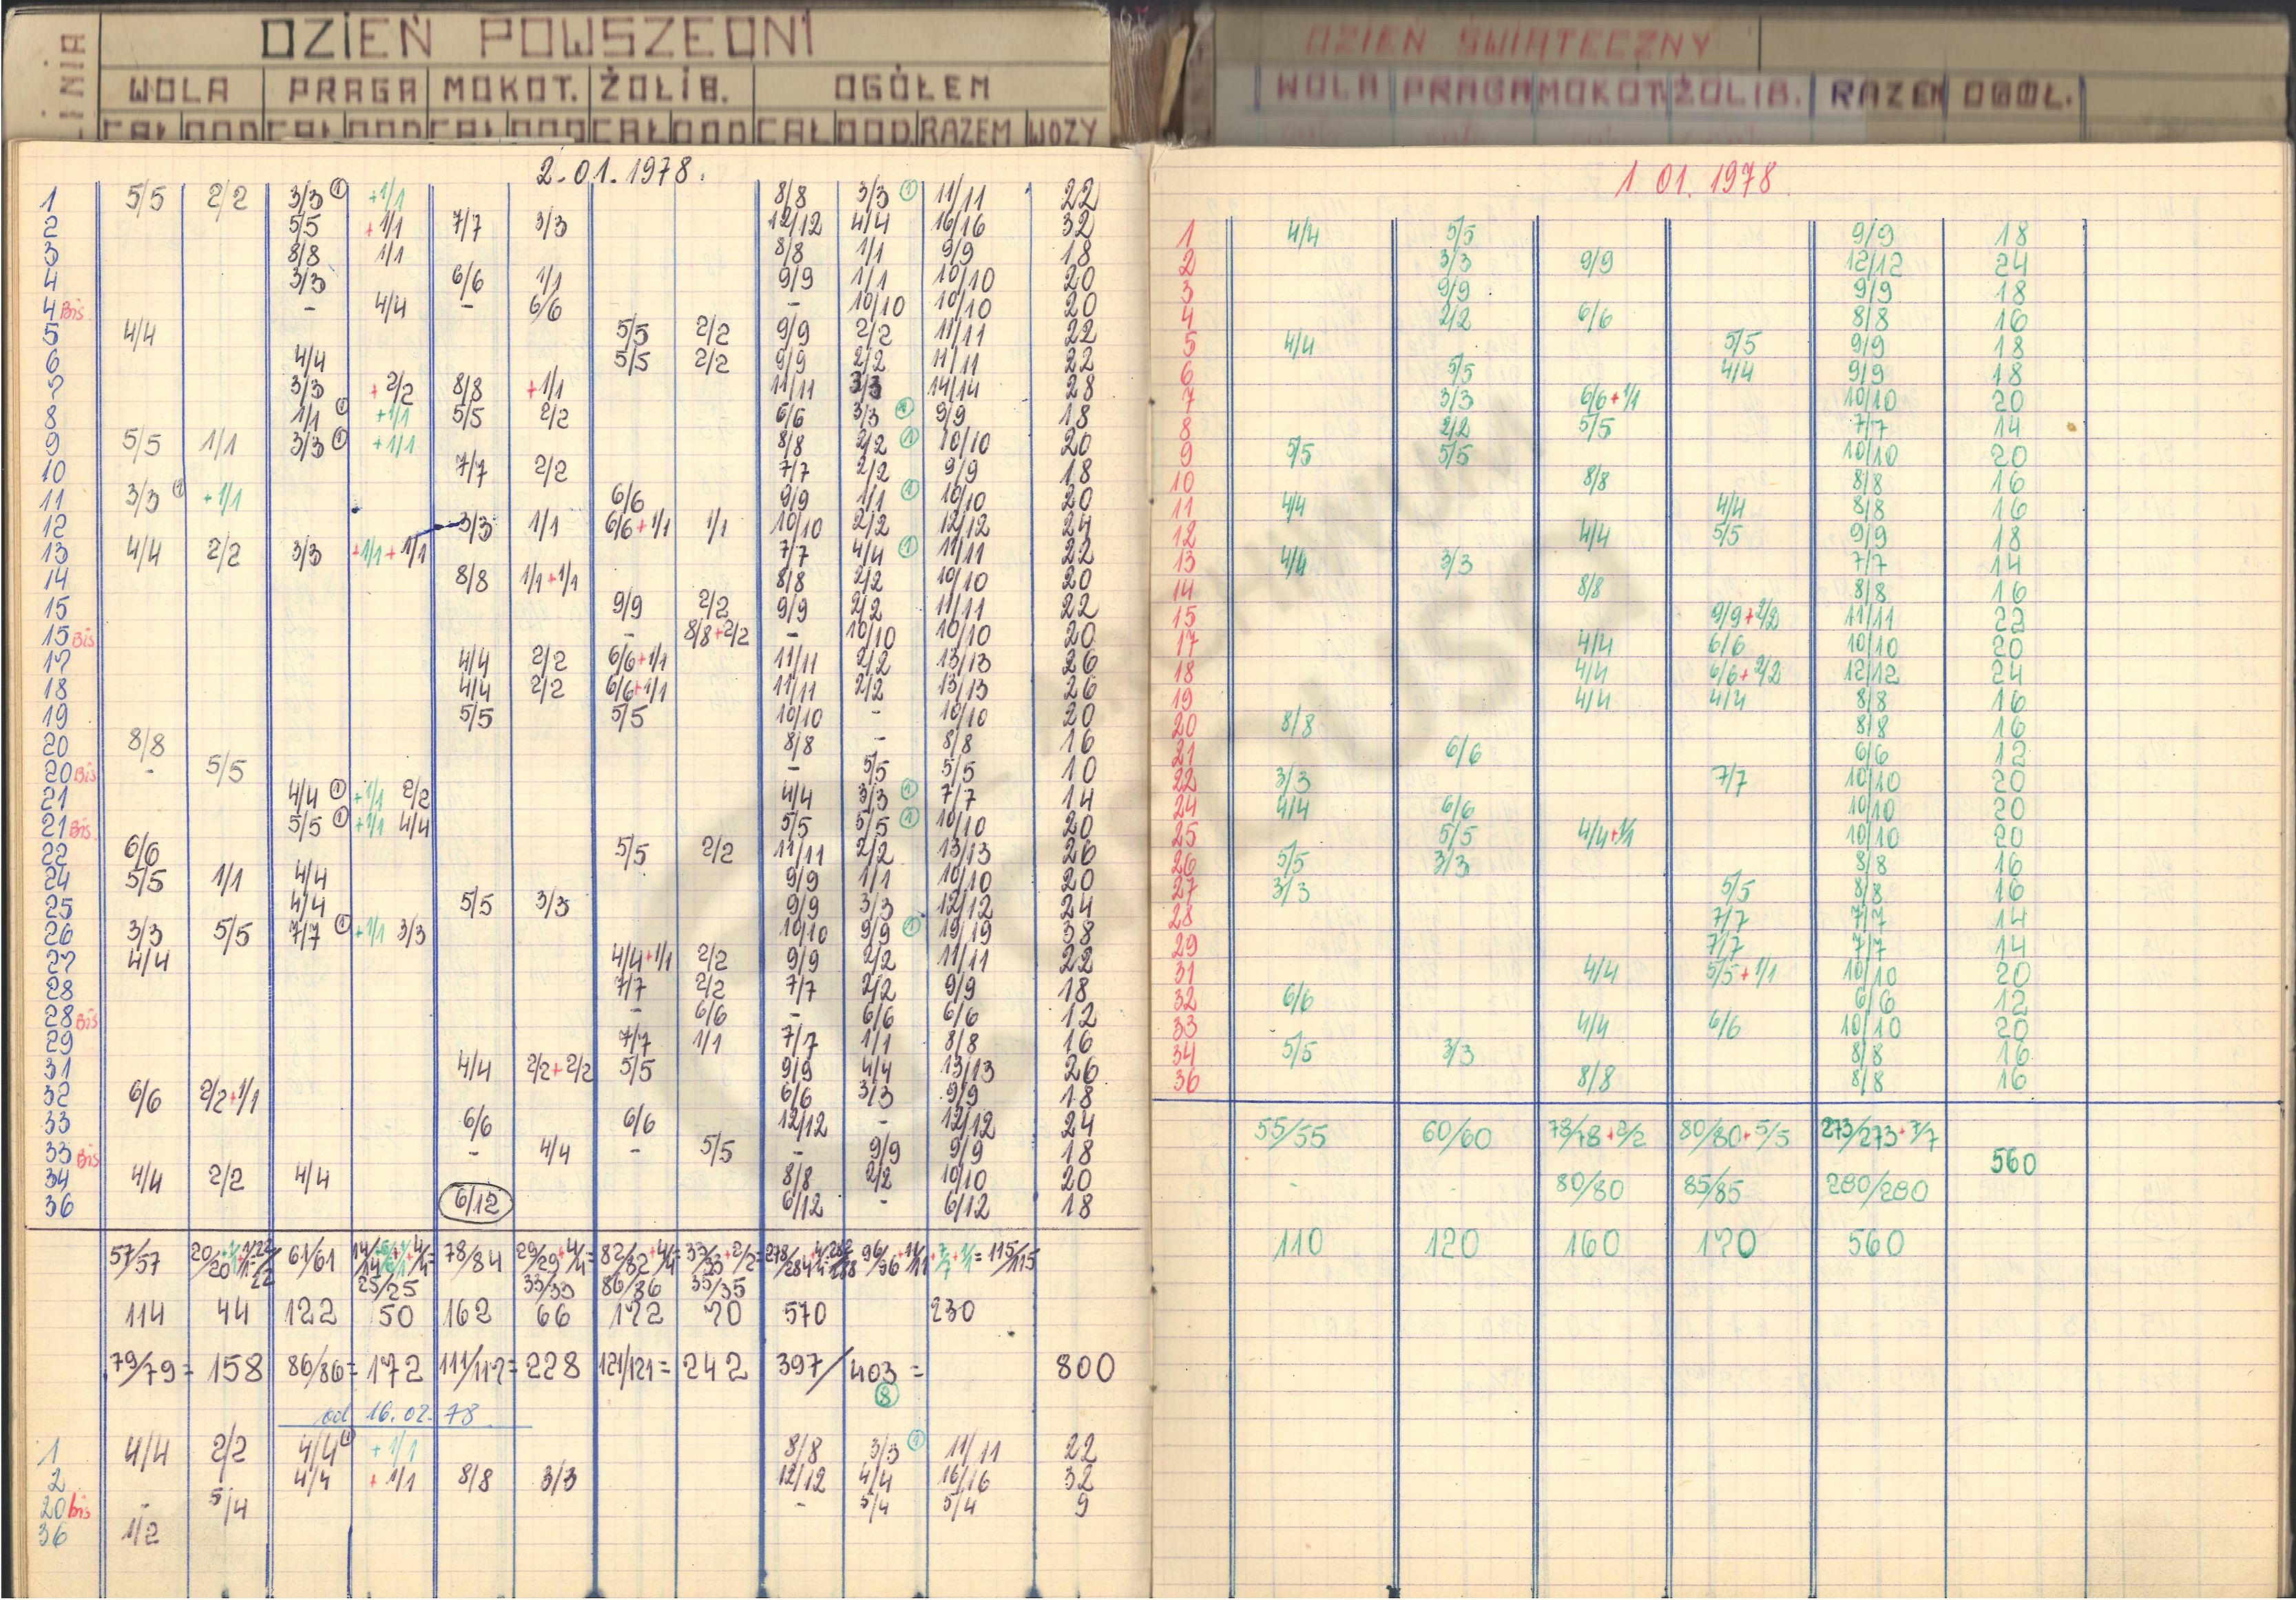 DZIEŃ POWSZEDNI
LINIA WOLA PRAGA MOKOT. ŻOLIB. OGÓŁEM
CAŁ DOD CAŁ DOD CAŁ DOD CAŁ DOD CAŁ DOD RAZEM WOZY
2.01.1978.
1 5/5 2/2 3/3 ① +1/1 8/8 3/3 ① 11/11 22
2 5/5 +1/1 7/7 3/3 12/12 4/4 16/16 32
3 8/8 1/1 8/8 1/1 9/9 18
4 3/3 6/6 1/1 9/9 1/1 10/10 20
4 Bis. - 4/4 - 6/6 - 10/10 10/10 20
5 4/4 5/5 2/2 9/9 2/2 11/11 22
6 4/4 5/5 2/2 9/9 2/2 11/11 22
7 3/3 +2/2 8/8 +1/1 11/11 3/3 14/14 28
8 1/1 ① +1/1 5/5 2/2 6/6 3/3 ① 9/9 18
9 5/5 1/1 3/3 ① +1/1 8/8 2/2 ① 10/10 20
10 7/7 2/2 7/7 2/2 9/9 18
11 3/3 ① +1/1 6/6 9/9 1/1 ① 10/10 20
12 3/3 1/1 6/6+1/1 1/1 10/10 2/2 12/12 24
13 4/4 2/2 3/3 +1/1+1/1 7/7 4/4 ① 11/11 22
14 8/8 1/1+1/1 8/8 2/2 10/10 20
15 9/9 2/2 9/9 2/2 11/11 22
15 Bis - 8/8+2/2 - 10/10 10/10 20
17 4/4 2/2 6/6+1/1 11/11 2/2 13/13 26
18 4/4 2/2 6/6+1/1 11/11 2/2 13/13 26
19 5/5 5/5 10/10 - 10/10 20
20 8/8 8/8 - 8/8 16
20 Bis - 5/5 - 5/5 5/5 10
21 4/4 ① +1/1 2/2 4/4 3/3 ① 7/7 14
21 Bis. 5/5 ① +1/1 4/4 5/5 5/5 ① 10/10 20
22 6/6 5/5 2/2 11/11 2/2 13/13 26
24 5/5 1/1 4/4 9/9 1/1 10/10 20
25 4/4 5/5 3/3 9/9 3/3 12/12 24
26 3/3 5/5 7/7 ① +1/1 3/3 10/10 9/9 ① 19/19 38
27 4/4 4/4+1/1 2/2 9/9 2/2 11/11 22
28 7/7 2/2 7/7 2/2 9/9 18
28 Bis - 6/6 - 6/6 6/6 12
29 7/7 1/1 7/7 1/1 8/8 16
31 4/4 2/2+2/2 5/5 9/9 4/4 13/13 26
32 6/6 2/2+1/1 6/6 3/3 9/9 18
33 6/6 6/6 12/12 - 12/12 24
33 Bis - 4/4 - 5/5 - 9/9 9/9 18
34 4/4 2/2 4/4 8/8 2/2 10/10 20
36 6/12 6/12 - 6/12 18
57/57 61/61 78/84 29/29+4/4= 82/82+4/4= 33/33+2/2= 96/96+11/11+7/7+1/1=115/115
25/25 33/33 86/86 35/35
114 44 122 50 162 66 172 70 570 230
79/79= 158 86/86= 172 111/117= 228 121/121= 242 397/403= 800
⑧
od 16.02.78
1 4/4 2/2 4/4 ① +1/1 8/8 3/3 ① 11/11 22
2 4/4 +1/1 8/8 3/3 12/12 4/4 16/16 32
20 bis - 5/4 - 5/4 5/4 9
36 1/2
DZIEŃ ŚWIĄTECZNY
WOLA PRAGA MOKOT. ŻOLIB. RAZEM OGÓŁ.
1 01.1978.
1 4/4 5/5 9/9 18
2 3/3 9/9 12/12 24
3 9/9 9/9 18
4 2/2 6/6 8/8 16
5 4/4 5/5 9/9 18
6 5/5 4/4 9/9 18
7 3/3 6/6+1/1 10/10 20
8 2/2 5/5 7/7 14
9 5/5 5/5 10/10 20
10 8/8 8/8 16
11 4/4 4/4 8/8 16
12 4/4 5/5 9/9 18
13 4/4 3/3 7/7 14
14 8/8 8/8 16
15 9/9+2/2 11/11 22
17 4/4 6/6 10/10 20
18 4/4 6/6+2/2 12/12 24
19 4/4 4/4 8/8 16
20 8/8 8/8 16
21 6/6 6/6 12
22 3/3 7/7 10/10 20
24 4/4 6/6 10/10 20
25 5/5 4/4+1/1 10/10 20
26 5/5 3/3 8/8 16
27 3/3 5/5 8/8 16
28 7/7 7/7 14
29 7/7 7/7 14
31 4/4 5/5+1/1 10/10 20
32 6/6 6/6 12
33 4/4 6/6 10/10 20
34 5/5 3/3 8/8 16
36 8/8 8/8 16
55/55 60/60 78/78+2/2 80/80+5/5 273/273+7/7
560
- - 80/80 85/85 280/280
110 120 160 170 560